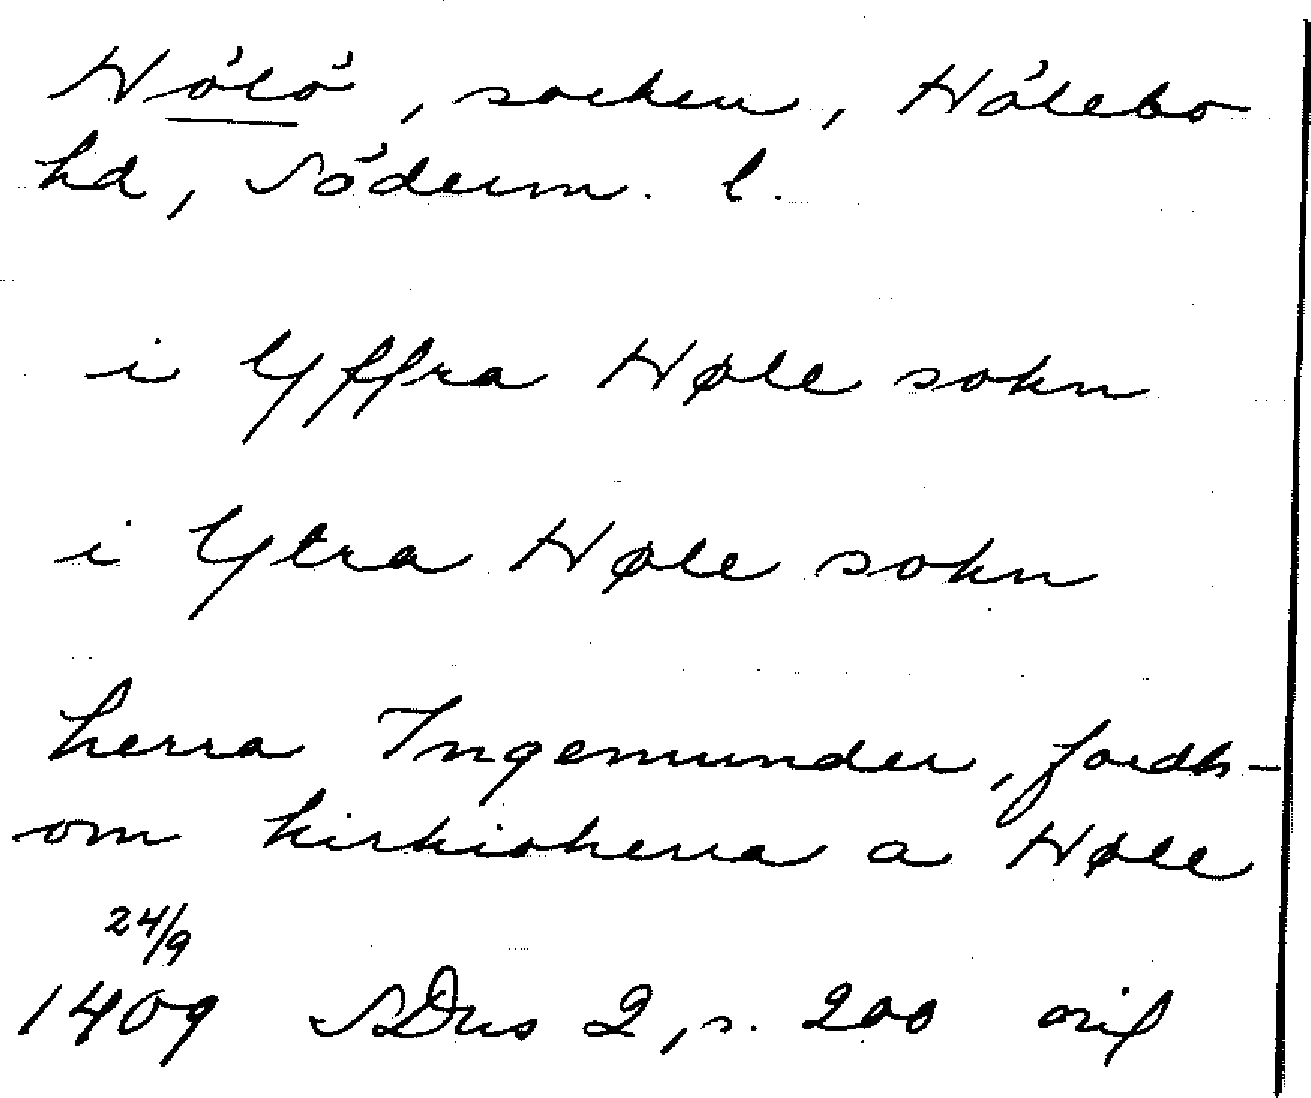 Hölö, socken, Hölebo
hd, Söderm. l.
i Yffra Høle sokn
i Ytra Høle sokn
herra Ingemunder, fordh-
om kirkioherra a Høle
24/9
1409 SDns 2, s. 200 orig